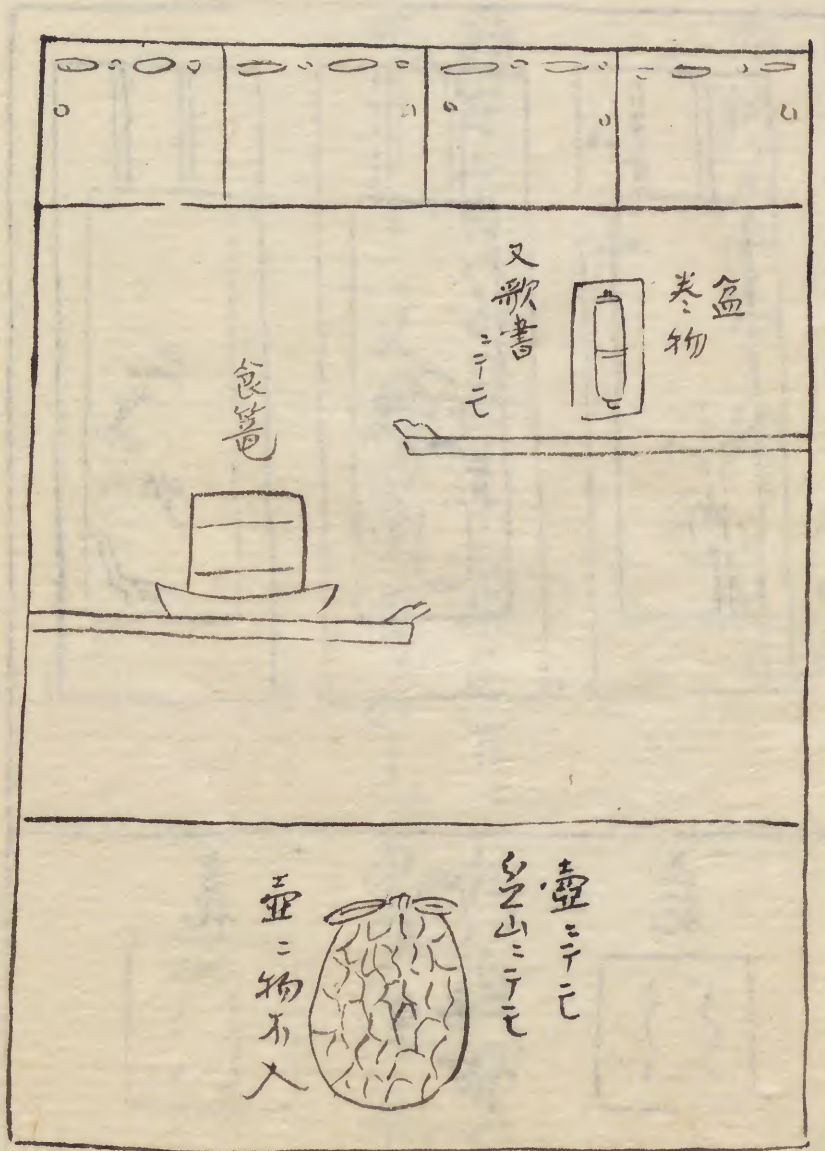 盆
巻物
又歌書ニテモ
食篭
壺ニテモ
盆山ニテモ
壺ニ物不入